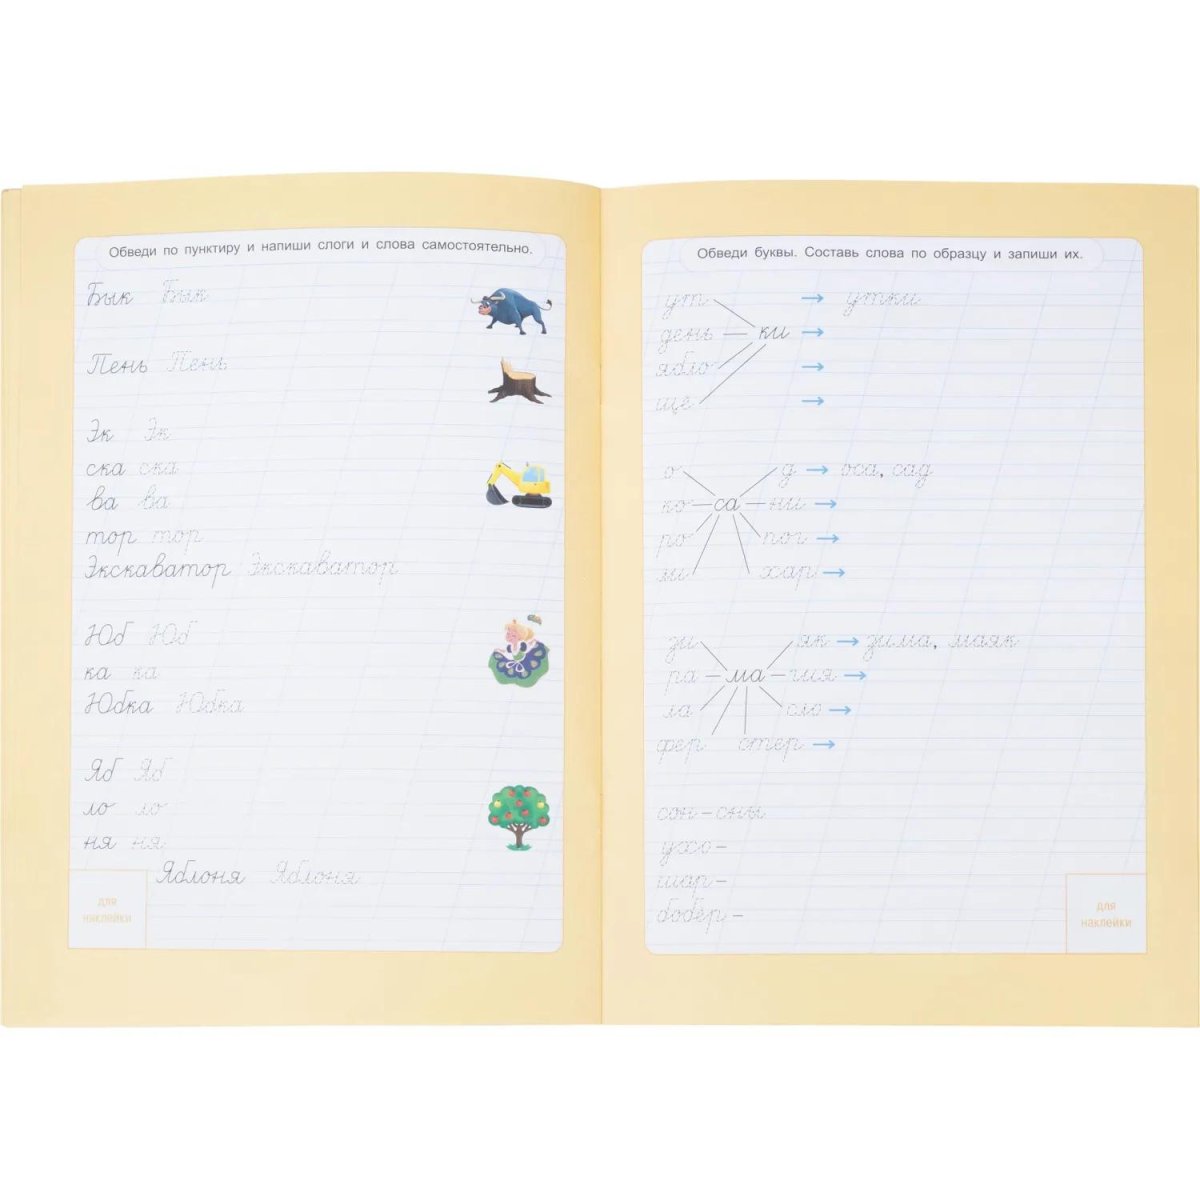 Обведи по пунктиру и напиши слоги и слова самостоятельно.
Бык Бык
Пень Пень
Эк Эк
ска ска
ва ва
тор тор
Экскаватор Экскаватор
Юб Юб
ка ка
Юбка Юбка
Яб Яб
ло ло
ня ня
Яблоня Яблоня
для
наклейки
Обведи буквы. Составь слова по образцу и запиши их.
ут → утки
день ки →
ябло →
ще →
о д → оса, сад
ко са ни →
ро пог →
ли хар →
зи як → зима, маяк
ра ма гия →
ла сло →
фер стер →
сон – сны
ухо –
шар –
бобёр –
для
наклейки